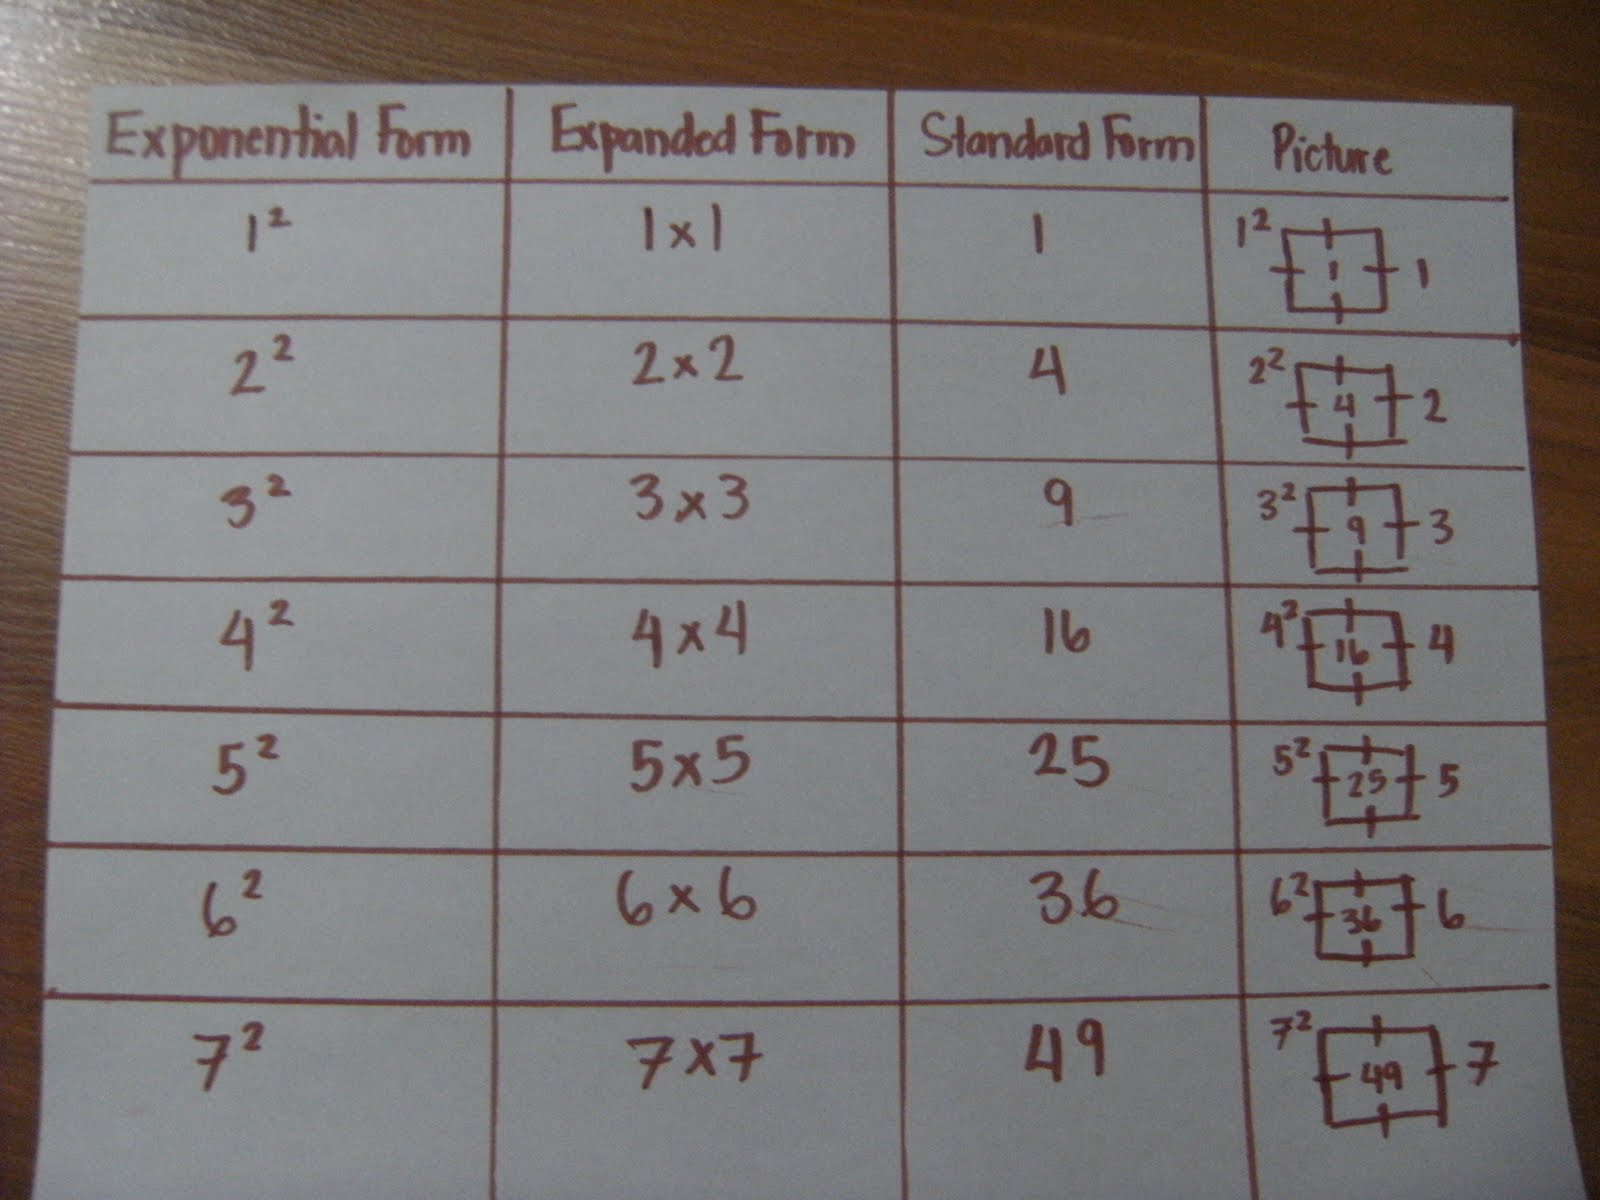 Exponential Form Expanded Form Standard Form Picture
1² 1x1 1 1² 1 1
2² 2x2 4 2² 4 2
3² 3x3 9 3² 9 3
4² 4x4 16 4² 16 4
5² 5x5 25 5² 25 5
6² 6x6 36 6² 36 6
7² 7x7 49 7² 49 7